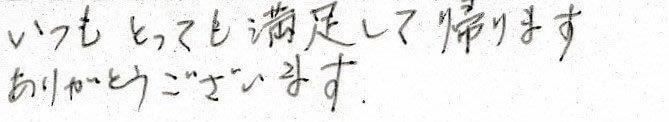 いつもとっても満足して帰ります
ありがとうございます.